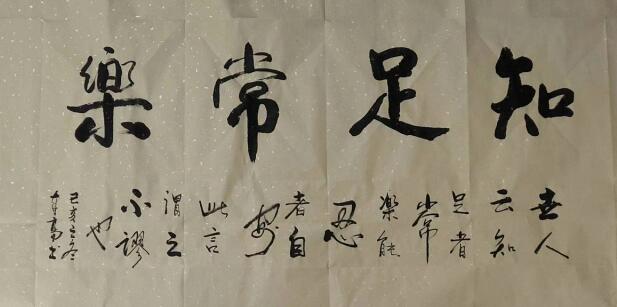 知足常樂
世人
云知
足者
常
樂能
忍
者自
安
此言
謂之
不謬
也
己亥之冬